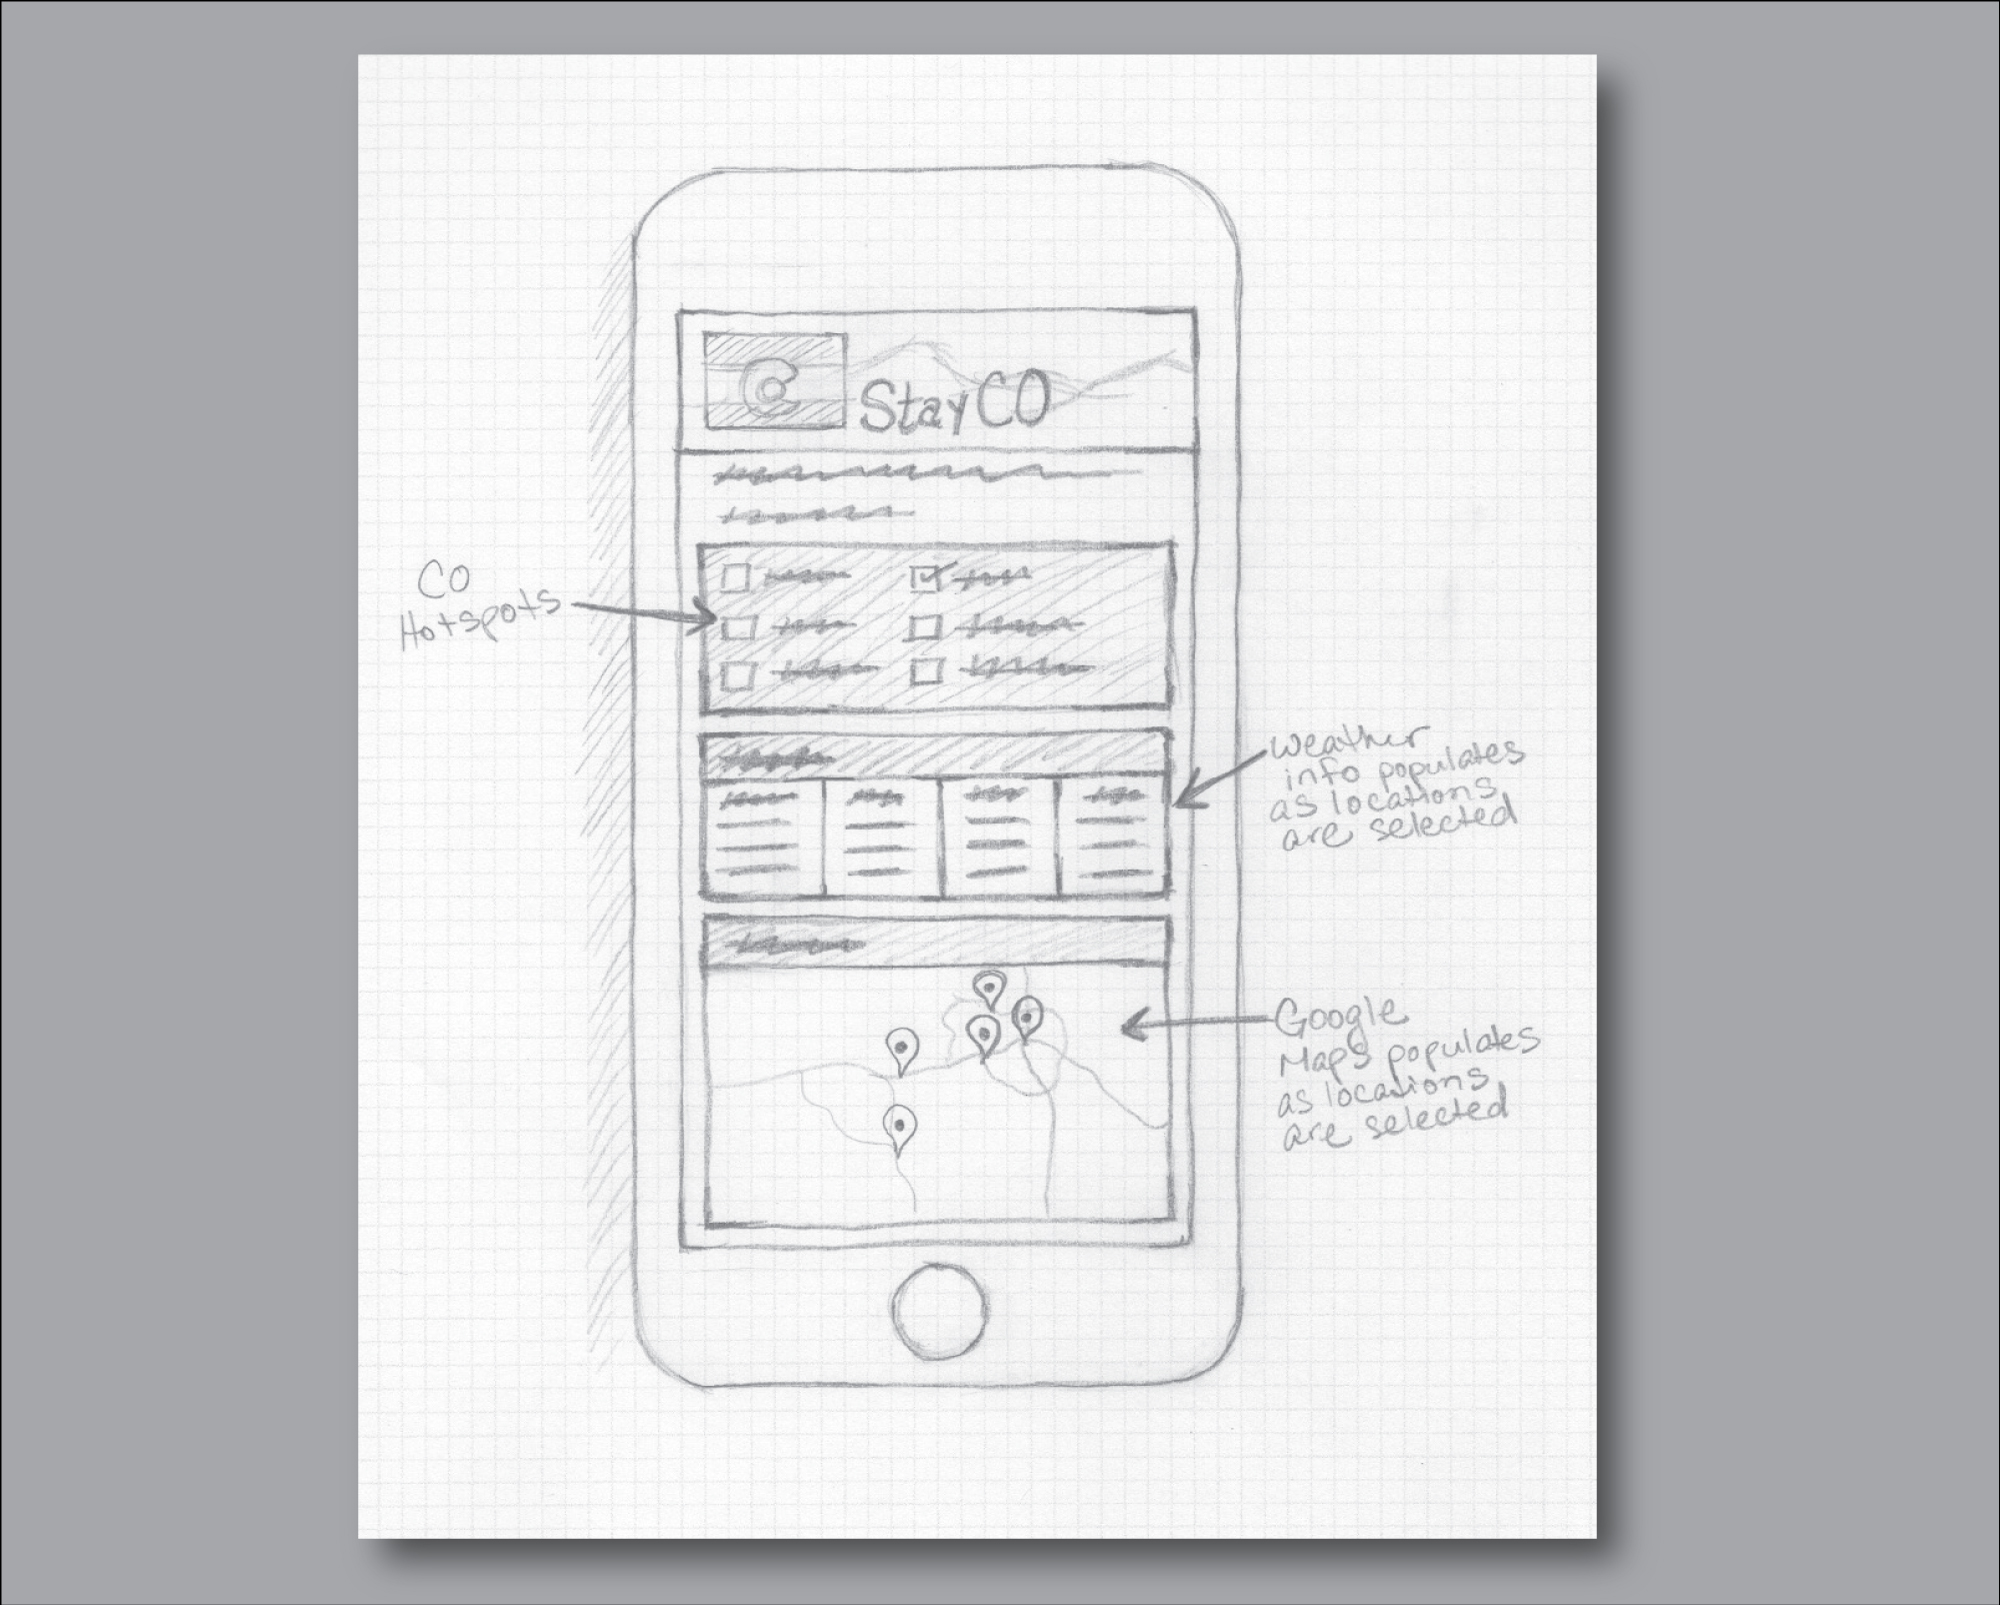 StayCO
CO
Hotspots
Weather
info populates
as locations
are selected
Google
Maps populates
as locations
are selected